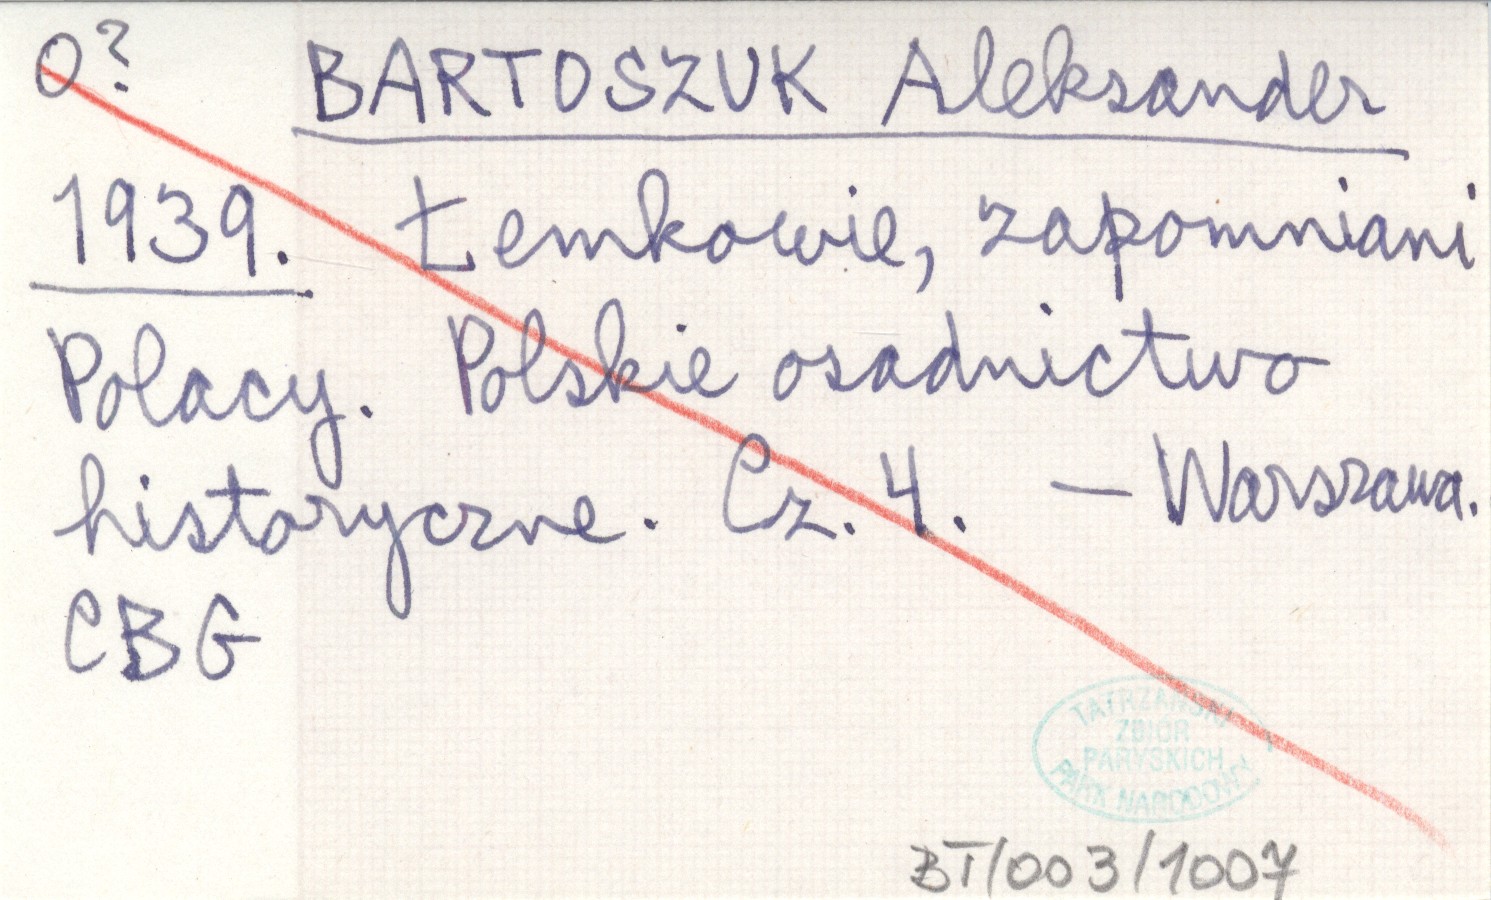 O? BARTOSZUK Aleksander
1939. Łemkowie, zapomniani
Polacy. Polskie osadnictwo
historyczne. Cz. 4. — Warszawa.
CBG
TATRZAŃSKI
ZBIÓR
PARYSKICH
PARK NARODOWY
BT/003/1007